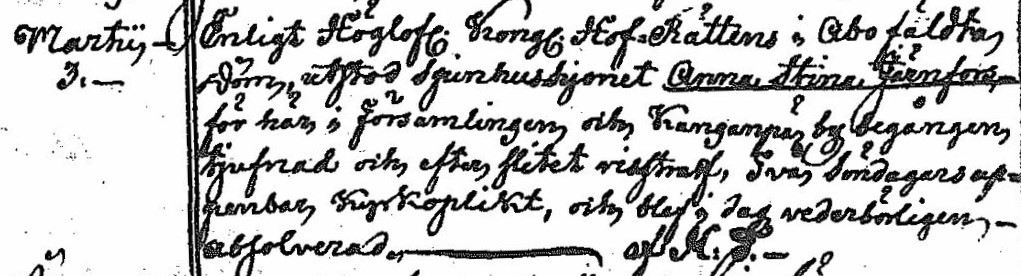 Martij, — Enligt Höglofl: Kongl: Hof-Rättens i Åbo fäldta
3. — Dom, utstod spinhushjonet Anna Stina Järnfors,
för här i Församlingen och Kanganpää by begången
tjufnad och efter slitet risstraff, Två Söndagars up=
penbar Kyrkoplikt, och blef i dag vederbörligen —
absolverad. — af